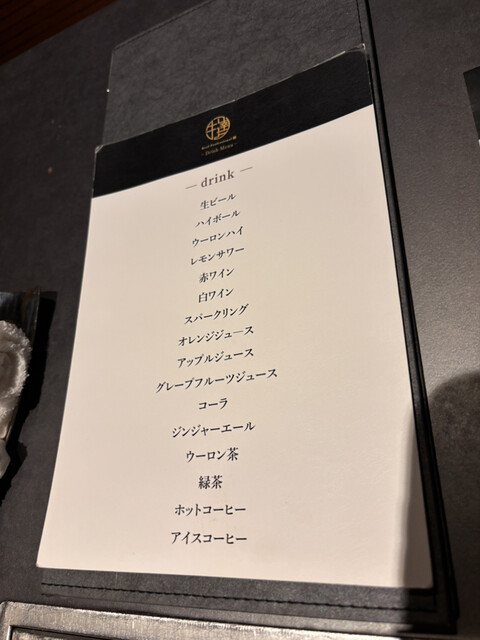 - Drink Menu -
— drink —
生ビール
ハイボール
ウーロンハイ
レモンサワー
赤ワイン
白ワイン
スパークリング
オレンジジュース
アップルジュース
グレープフルーツジュース
コーラ
ジンジャーエール
ウーロン茶
緑茶
ホットコーヒー
アイスコーヒー